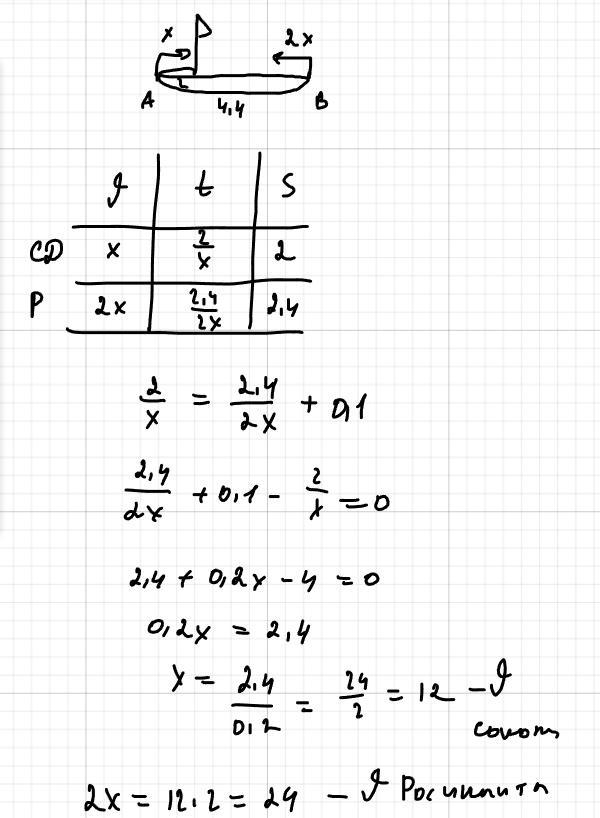 x 2x
2
A 4,4 B
v t S
CD x 2/x 2
P 2x 2,4/2x 2,4
2/x = 2,4/2x + 0,1
2,4/2x + 0,1 - 2/x = 0
2,4 + 0,2x - 4 = 0
0,2x = 2,4
x = 2,4/0,2 = 24/2 = 12 - v
2x = 12.2 = 24 - v